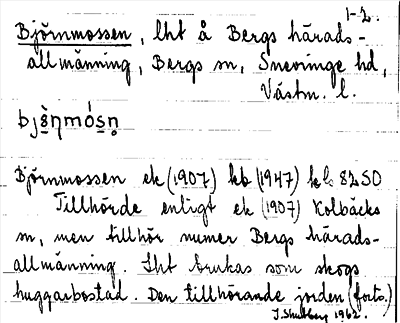 1-2.
Björnmossen, lht å Bergs härads-
allmänning, Bergs sn, Snevringe hd,
Västm. l.
Björnmossen ek (1907) kb (1947) 8250
Tillhörde enligt ek (1907) Kolbäcks
sn, men tillhör numer Bergs härads-
allmänning. Lht brukas som skogs
huggarbostad. Den tillhörande jorden (forts.)
1962.